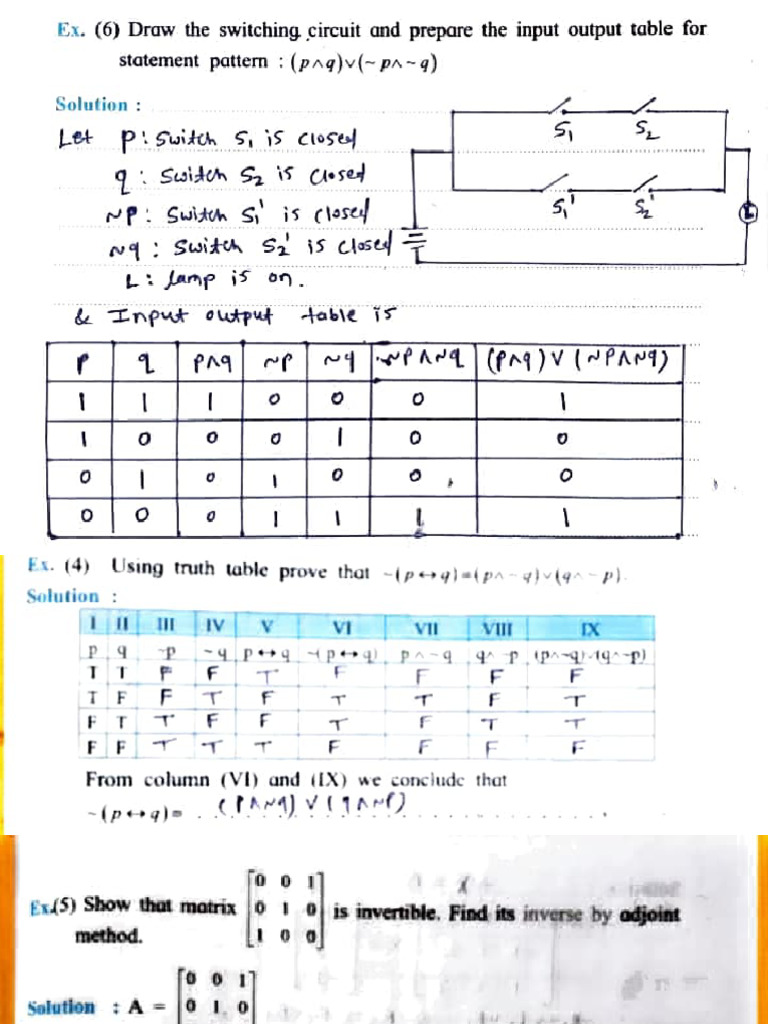 Ex. (6) Draw the switching circuit and prepare the input output table for
statement pattern : (p∧q)∨(~p∧~q)
Solution :
Let p : Switch S₁ is closed
q : Switch S₂ is closed
~p : Switch S₁' is closed
~q : Switch S₂' is closed
L : lamp is on.
S₁ S₂
S₁' S₂'
L
& Input output table is
p q p∧q ~p ~q ~p∧~q (p∧q)∨(~p∧~q)
1 1 1 0 0 0 1
1 0 0 0 1 0 0
0 1 0 1 0 0 0
0 0 0 1 1 1 1
Ex. (4) Using truth table prove that ~(p↔q)≡(p∧~q)∨(q∧~p).
Solution :
I II III IV V VI VII VIII IX
p q ~p ~q p↔q ~(p↔q) p∧~q q∧~p (p∧~q)∨(q∧~p)
T T F F T F F F F
T F F T F T T F T
F T T F F T F T T
F F T T T F F F F
From column (VI) and (IX) we conclude that
~(p↔q)≡ (p∧~q)∨(q∧~p)
Ex.(5) Show that matrix [0 0 1
0 1 0
1 0 0] is invertible. Find its inverse by adjoint
method.
Solution : A = [0 0 1
0 1 0